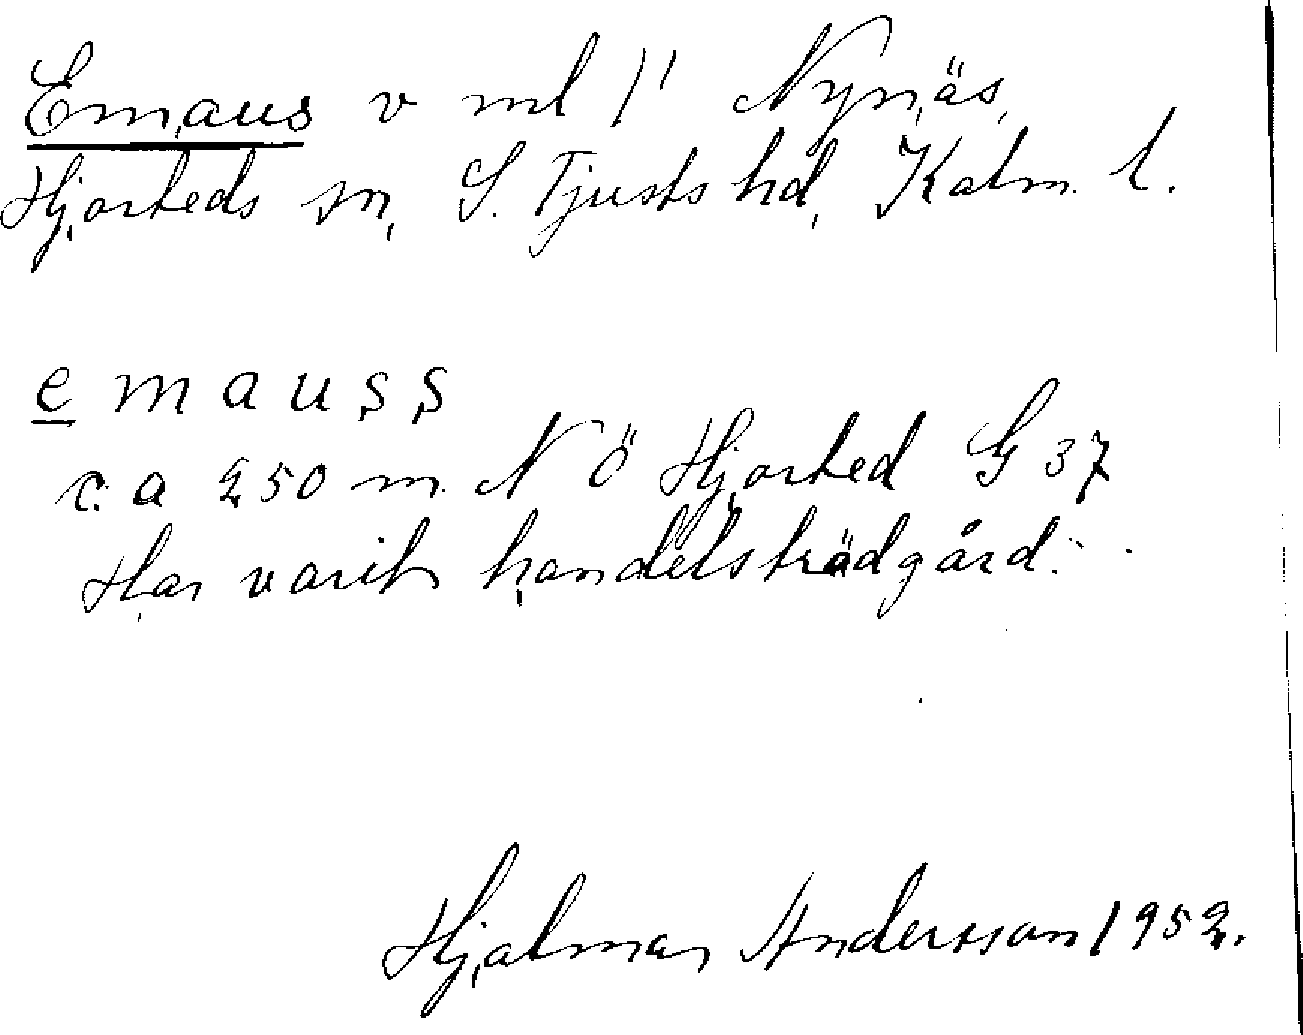 Emaus v ml 1" Nynäs,
Hjorteds sn, S. Tjusts hd, Kalm. l.
emauss
c:a 250 m. N Ö Hjorted G 37
Har varit handelsträdgård.
Hjalmar Andersson 1952.